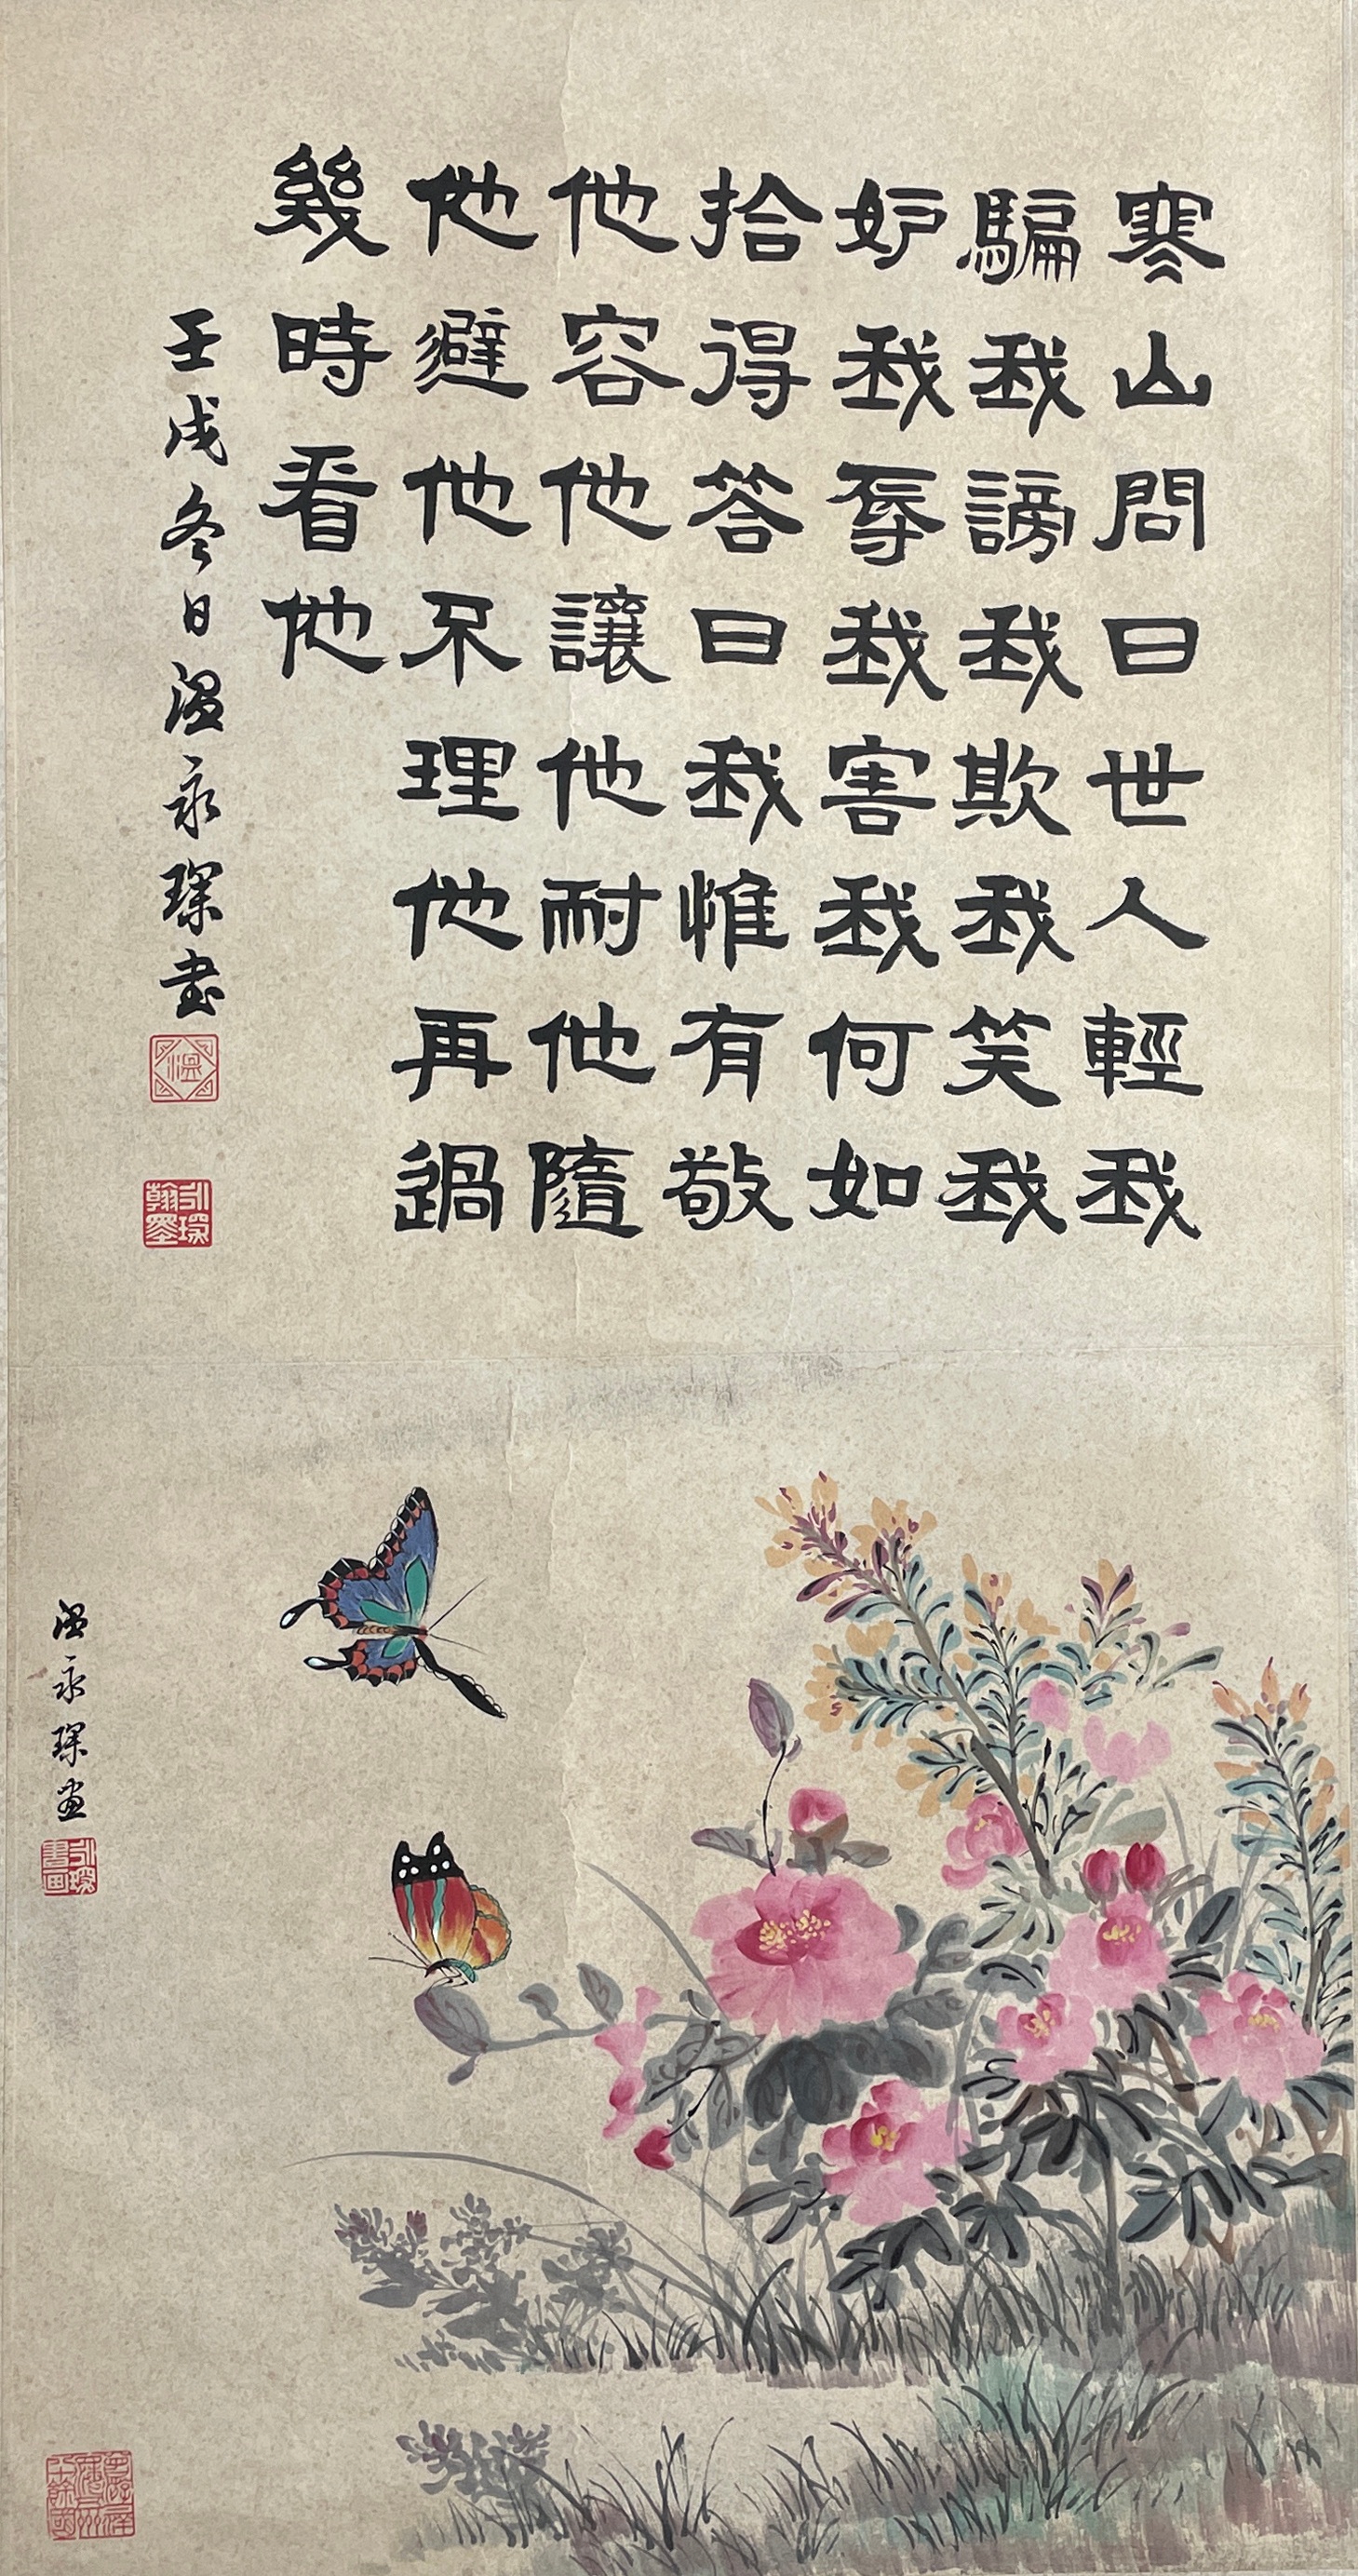 寒山問曰世人輕我
騙我謗我欺我笑我
妒我辱我害我何如
拾得答曰我惟有敬
他容他讓他耐他隨
他避他不理他再過
幾時看他
壬戌冬日溫永琛書
溫
永琛翰墨
溫永琛畫
永琛書画